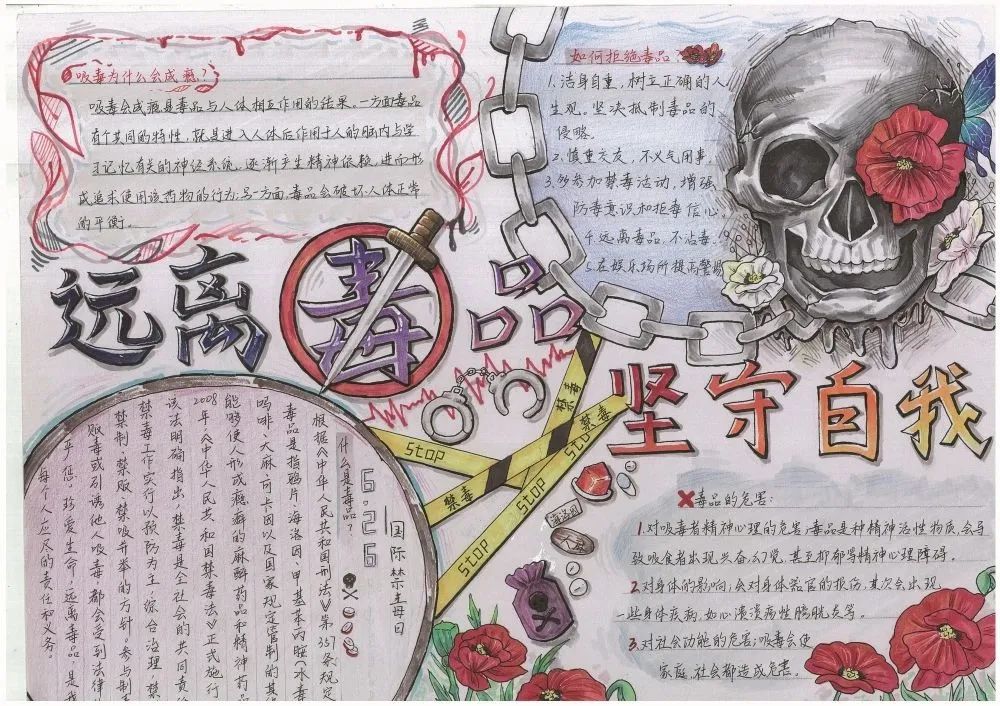 吸毒为什么会成瘾？
吸毒会成瘾是毒品与人体相互作用的结果。一方面毒品
有个共同的特性，就是进入人体后作用于人的脑内与学
习记忆有关的神经系统，逐渐产生精神依赖，进而形
成追求使用该药物的行为。另方面，毒品会破坏人体正常
的平衡。
如何拒绝毒品？
1.洁身自重，树立正确的人
生观。坚决抵制毒品的
侵略。
2.慎重交友，不义气用事。
3.多参加禁毒活动，增强
防毒意识和拒毒信心。
4.远离毒品，不沾毒。
5.在娱乐场所提高警惕
远离毒品
坚守自我
6.26
国际禁毒日
什么是毒品？
根据《中华人民共和国刑法》第357条规定
毒品是指鸦片、海洛因、甲基苯丙胺（冰毒
吗啡、大麻、可卡因以及国家规定管制的其
能够使人形成瘾癖的麻醉药品和精神药品
2008年《中华人民共和国禁毒法》正式施行
该法明确指出，禁毒是全社会的共同责
禁毒工作实行以预防为主，综合治理，禁
禁制、禁贩、禁吸并举的方针。参与制
贩毒或引诱他人吸毒，都会受到法律
平您，珍爱生命，远离毒品，是我
每个人应尽的责任和义务。
STOP
禁毒
禁毒
STOP
禁毒
STOP
STOP
海洛因
毒品的危害：
1.对吸毒者精神心理的危害，毒品是种精神活性物质，会导
致吸食者出现兴奋、幻觉，甚至抑郁等精神心理障碍。
2.对身体的影响，会对身体器官的损伤，其次会出现
一些身体疾病，如心溃溃病性膀胱炎等。
3.对社会功能的危害，吸毒会使
家庭、社会都造成危害。